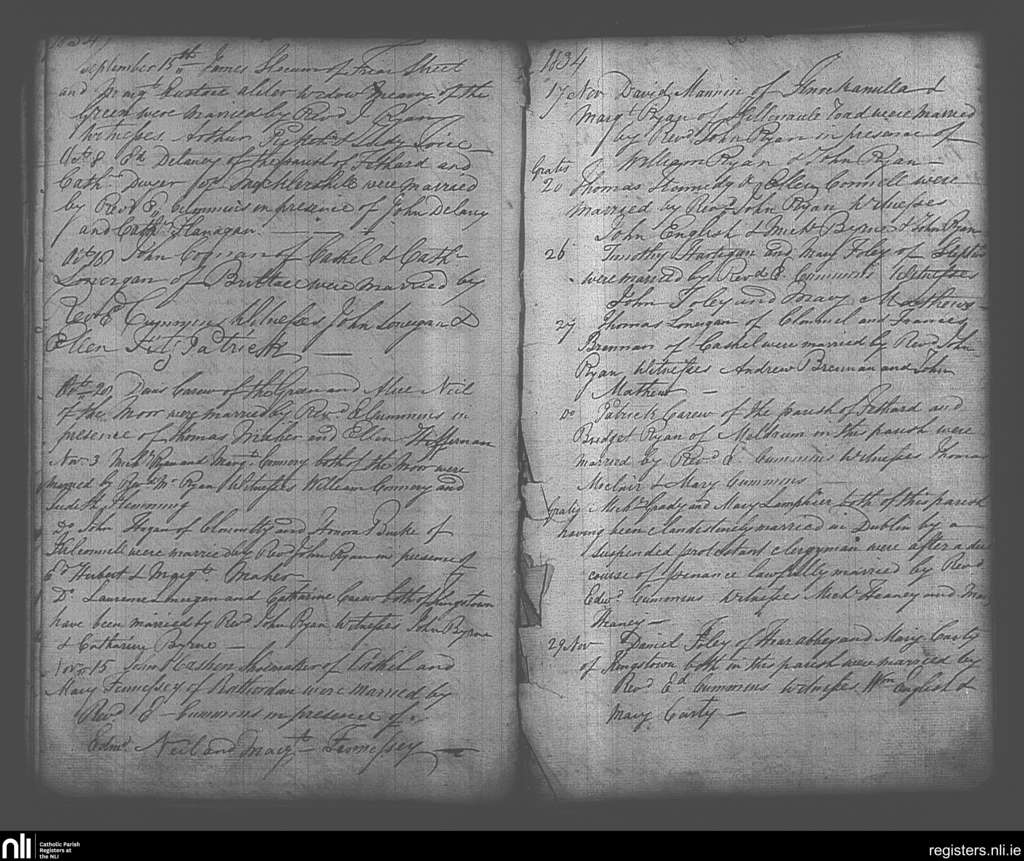 1834
September 15th James Slocum of Friar Street
and Margt alias widow of the
Green were married by Revd J Ryan
Witnesses Arthur & Judy
Octr 8 Ed Delaney of the parish of Fethard and
Cathn Dwyer for were married
by Revd Ed Cummins in presence of John Delany
and Cathn Flanagan.
Octr 18 John of Cashel & Cathn
Lonergan of Brittas were married by
Revd Ed Cummins Witnesses John Lonegan &
Ellen Fitz Patrick
Octr 20 Danl Carew of the Green and Alice Neil
of the Moor were married by Revd E Cummins in
presence of Thomas and Ellen Heffernan
Novr 3 Michl Ryan and Margt Connery both of the Moor were
married by Revd Mr Ryan Witnesses William Connery and
Judith Flemming
Do John Hogan of and Honora Burke of
were married by Revd John Ryan in presence of
Ed Hubert & Margt Maher
Do Laurence Lonegan and Catharine Carew both of Kingstown
have been married by Revd John Ryan Witnesses John Byrne
& Catharine Byrne
Novr 15 John Cashen Shoemaker of Cashel and
Mary Fennessey of were married by
Revd E Cummins in presence of
Edmd Neil and Margt Fennessey
1834
17 Nov David Mannin of Knockanulla &
Margt Ryan of Road were married
by Revd John Ryan in presence of
William Ryan & John Ryan
Gratis
20 Thomas Kennedy & Ellen Connell were
married by Revd John Ryan Witnesses
John English & Michl Byrne & John Ryan
26 Timothy Hartigan and Mary Foley of
were married by Revd E Cummins Witnesses
John Foley and Mary Matthews
27 Thomas Lonegan of Clonmel and Frances
Brennan of Cashel were married by Revd John
Ryan Witnesses Andrew Brennan and John
Mathew
Do Patrick Carew of the parish of Fethard and
Bridget Ryan of Meldrum in this parish were
married by Revd E Cummins Witnesses Thomas
Meclair & Mary Cummins
Gratis Michl Grady and Mary Lanphier both of this parish
having been clandestinely married in Dublin by a
suspended protestant clergyman were after a due
course of penance lawfully married by Revd
Edwd Cummins Witnesses Michl Heaney and Mary
Heaney
29 Nov Daniel Foley of Hoarabbey and Mary Carty
of Kingstown both in this parish were married by
Revd Ed Cummins Witnesses Wm English &
Mary Carty
nli
Catholic Parish
Registers at
the NLI
registers.nli.ie